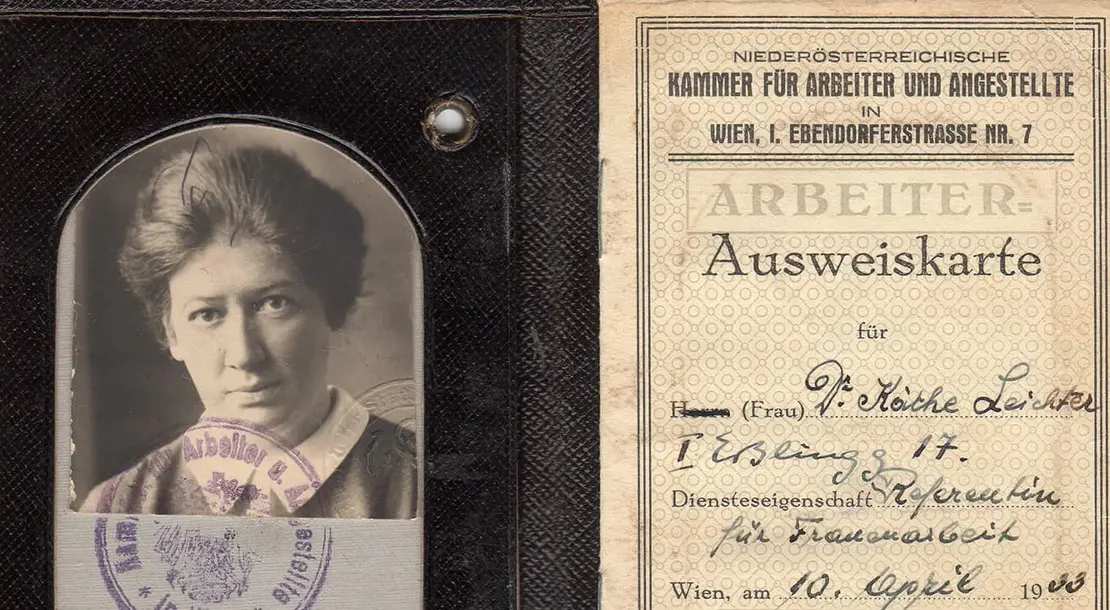 NIEDERÖSTERREICHISCHE
KAMMER FÜR ARBEITER UND ANGESTELLTE
IN
WIEN, I. EBENDORFERSTRASSE NR. 7
ARBEITER=
Ausweiskarte
für
Herrn (Frau) Dr. Käthe Leichter
I Eßlingg 17.
Diensteseigenschaft Referentin
für Frauenarbeit
Wien, am 10. April 1933
für Arbeiter u. A
estellte